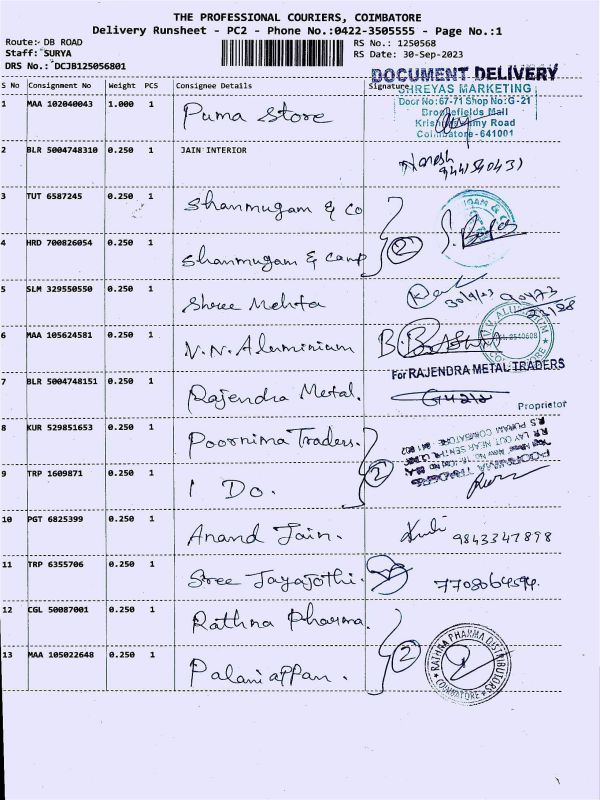 THE PROFESSIONAL COURIERS, COIMBATORE
Delivery Runsheet - PC2 - Phone No.:0422-3505555 - Page No.:1
Route: DB ROAD
RS No.: 1250568
Staff: SURYA
RS Date: 30-Sep-2023
DRS No.: DCJB125056801
DOCUMENT DELIVERY
S No Consignment No Weight PCS Consignee Details Signature
SHREYAS MARKETING
Door No:67-71 Shop No:G-21
Brookefields Mall
Krishnasamy Road
Coimbatore-641001
1 MAA 102040043 1.000 1 Puma Store
2 BLR 5004748310 0.250 1 JAIN INTERIOR
Naresh
3 TUT 6587245 0.250 1 Shanmugam & Co
4 HRD 700826054 0.250 1 Shanmugam & Camp
2
5 SLM 329550550 0.250 1 Shree Mehta
30/9/23
6 MAA 105624581 0.250 1 V.N. Aluminium
7 BLR 5004748151 0.250 1 Rajendra Metal.
For RAJENDRA METAL TRADERS
Proprietor
8 KUR 529851653 0.250 1 Poornima Traders.
POORNIMA TRADERS
9 TRP 1609871 0.250 1 I Do.
2
10 PGT 6825399 0.250 1 Anand Jain.
9843347898
11 TRP 6355706 0.250 1 Sree Jayajothi.
7708064594.
12 CGL 50087001 0.250 1 Rathna Pharma.
13 MAA 105022648 0.250 1 Palaniappan.
2
RATHNA PHARMA DISTRIBUTORS
COIMBATORE